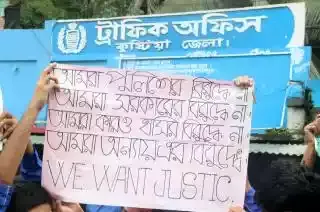 ট্রাফিক অফিস
কুষ্টিয়া জেলা।
আমরা পুলিশের বিরুদ্ধে না
আমরা সরকারের বিরুদ্ধে না
আমরা কারও বাসার বিরুদ্ধে না
আমরা অন্যায়ের বিরুদ্ধে
WE WANT JUSTIC